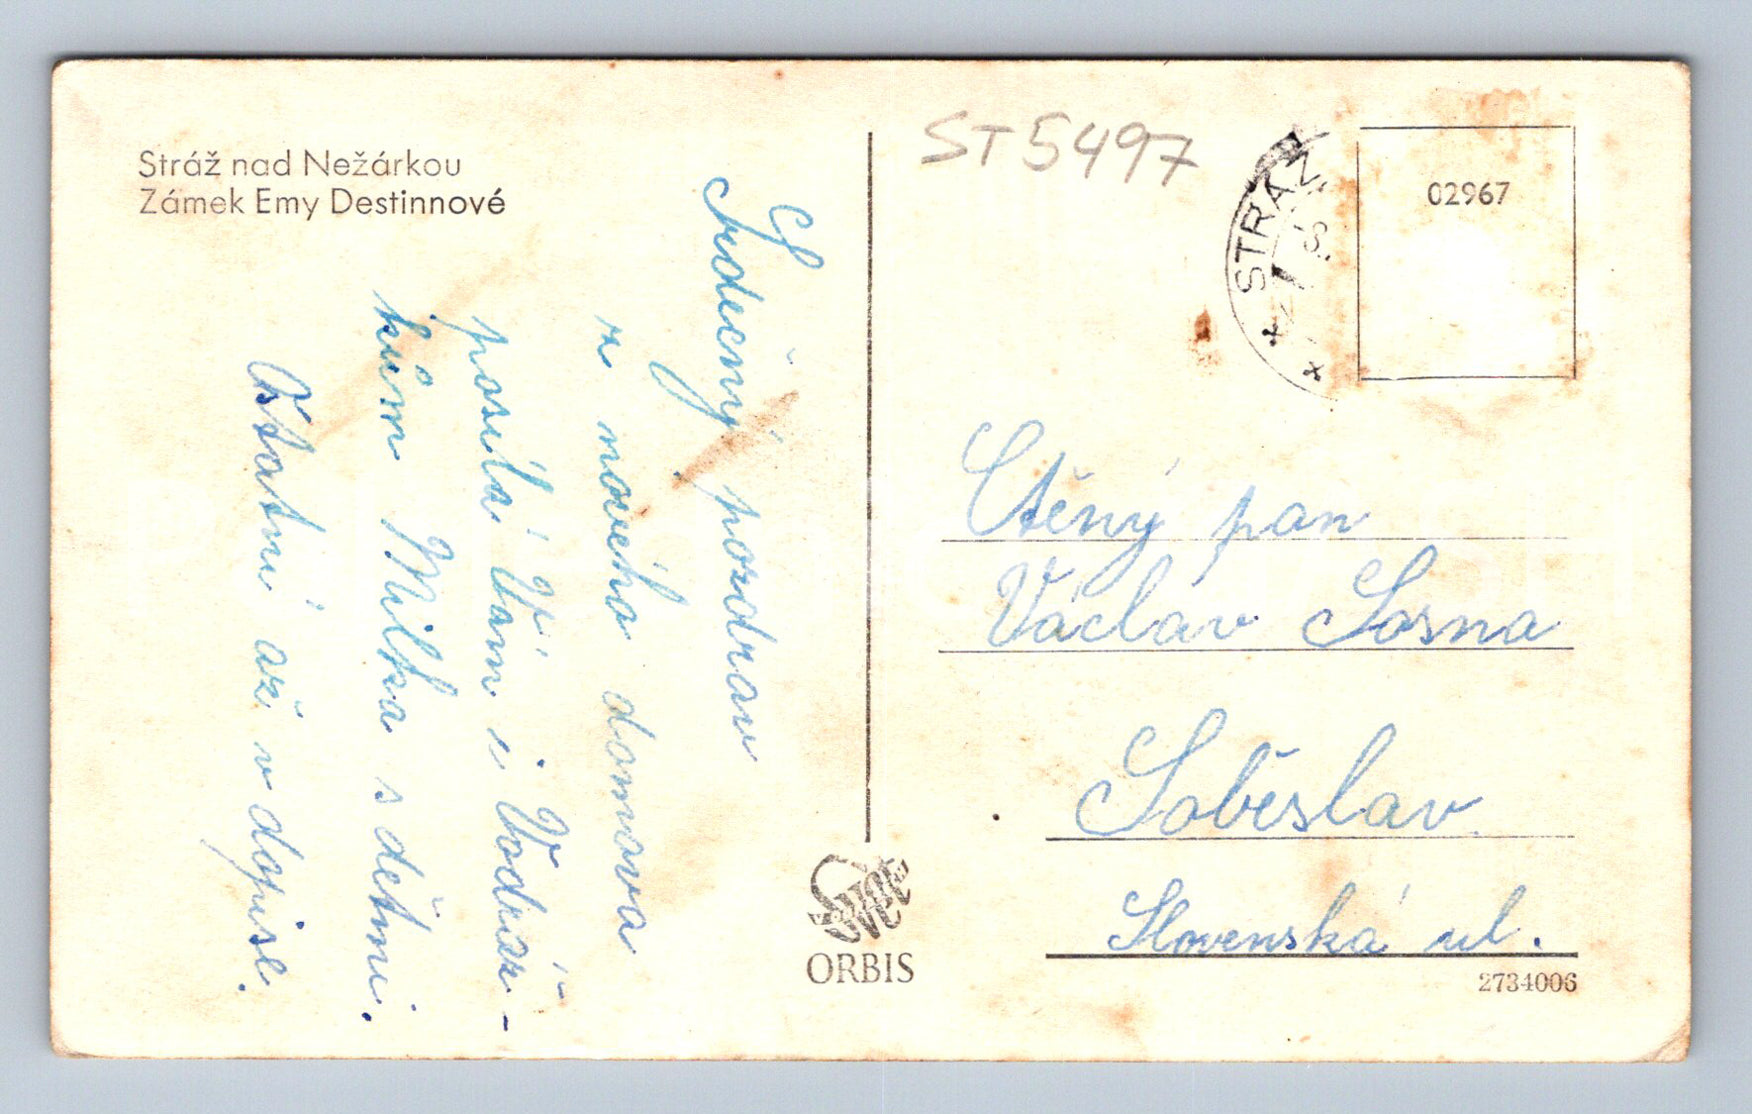 Stráž nad Nežárkou
Zámek Emy Destinnové
Srdečný pozdrav
z nového domova
posílá Vám i Vodráž-
kům Milka s dětmi.
Ostatní až v dopise.
ST5497
STRÁŽ
02967
Ctěný pan
Václav Sosna
Soběslav
Slovenská ul.
ORBIS
2734006